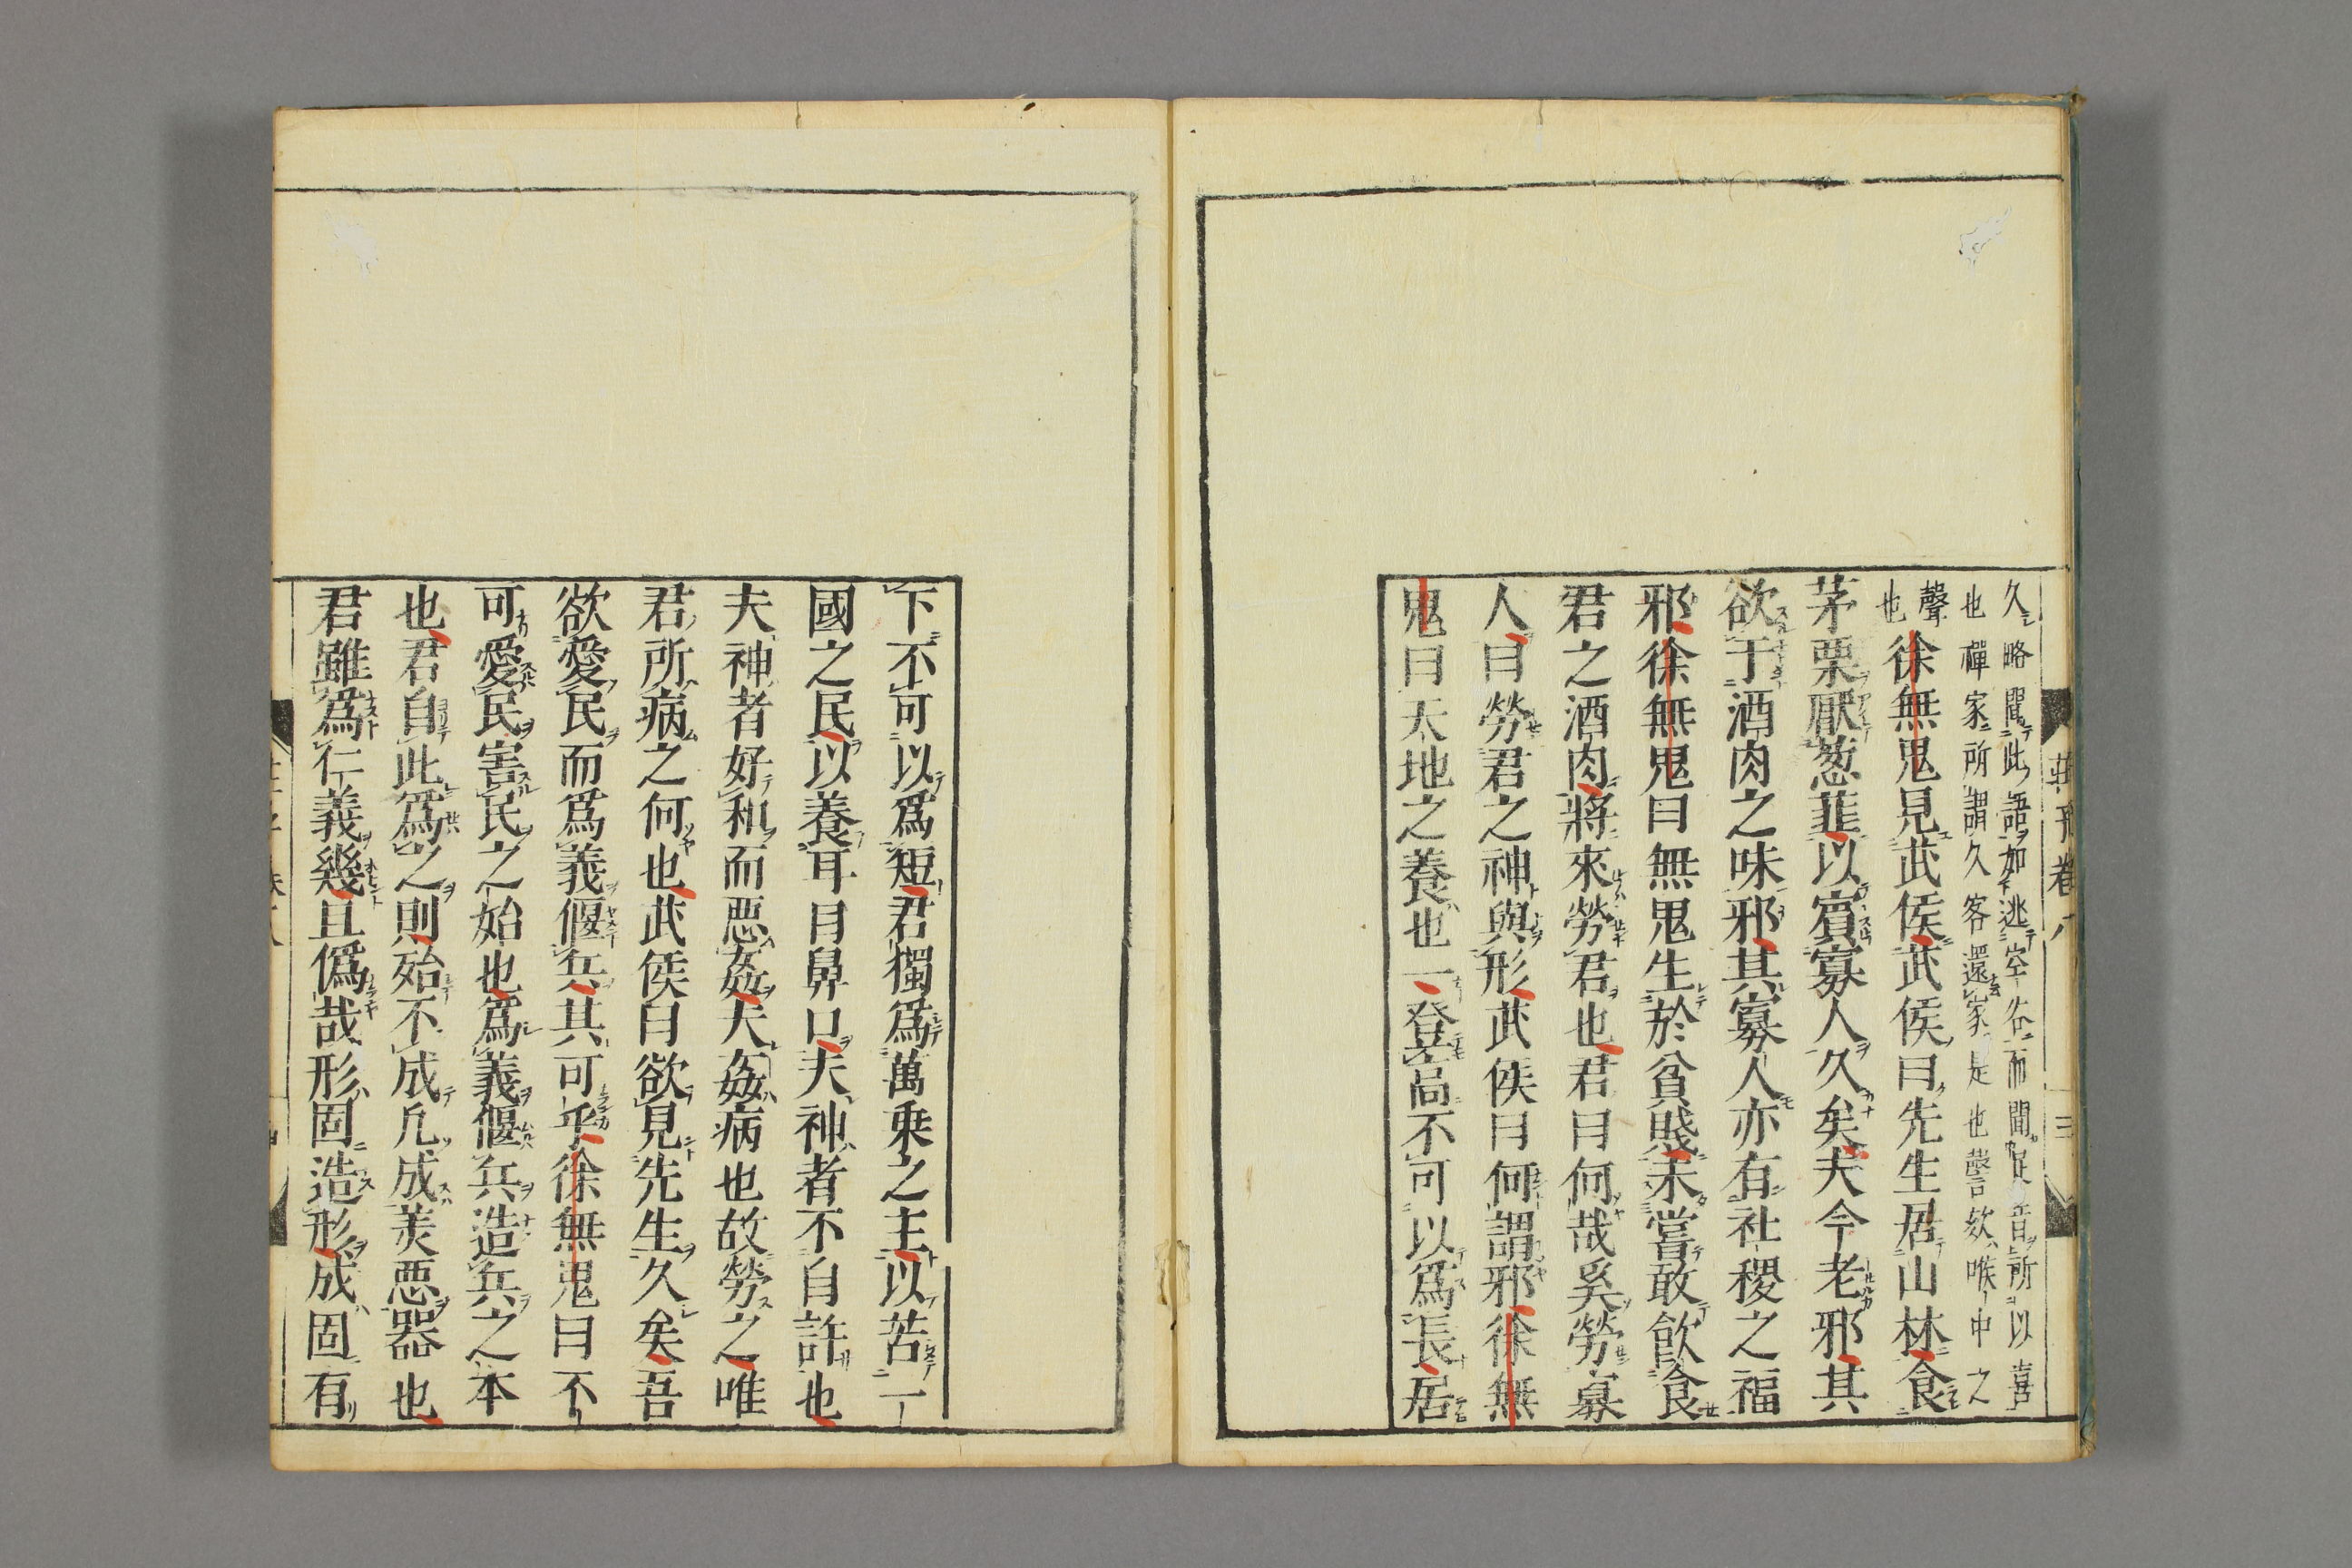 久略聞此語如逃空谷而聞足音所以喜
也禪家所謂久客還家是也謦欬喉中之
聲
也
徐無鬼見武侯武侯曰先生居山林食
茅栗厭葱韮以賓寡人久矣夫今老邪其
欲于酒肉之味邪其寡人亦有社稷之福
邪徐無鬼曰無鬼生於貧賤未嘗敢飮食
君之酒肉將來勞君也君曰何哉奚勞寡
人曰勞君之神與形武侯曰何謂邪徐無
鬼曰天地之養也一登高不可以爲長居
下不可以爲短君獨爲萬乗之主以苦一
國之民以養耳目鼻口夫神者不自許也
夫神者好和而惡姦夫姦病也故勞之唯
君所病之何也武侯曰欲見先生久矣吾
欲愛民而爲義偃兵其可乎徐無鬼曰不
可愛民害民之始也爲義偃兵造兵之本
也君自此爲之則殆不成凡成美惡器也
君雖爲仁義幾且僞哉形固造形成固有